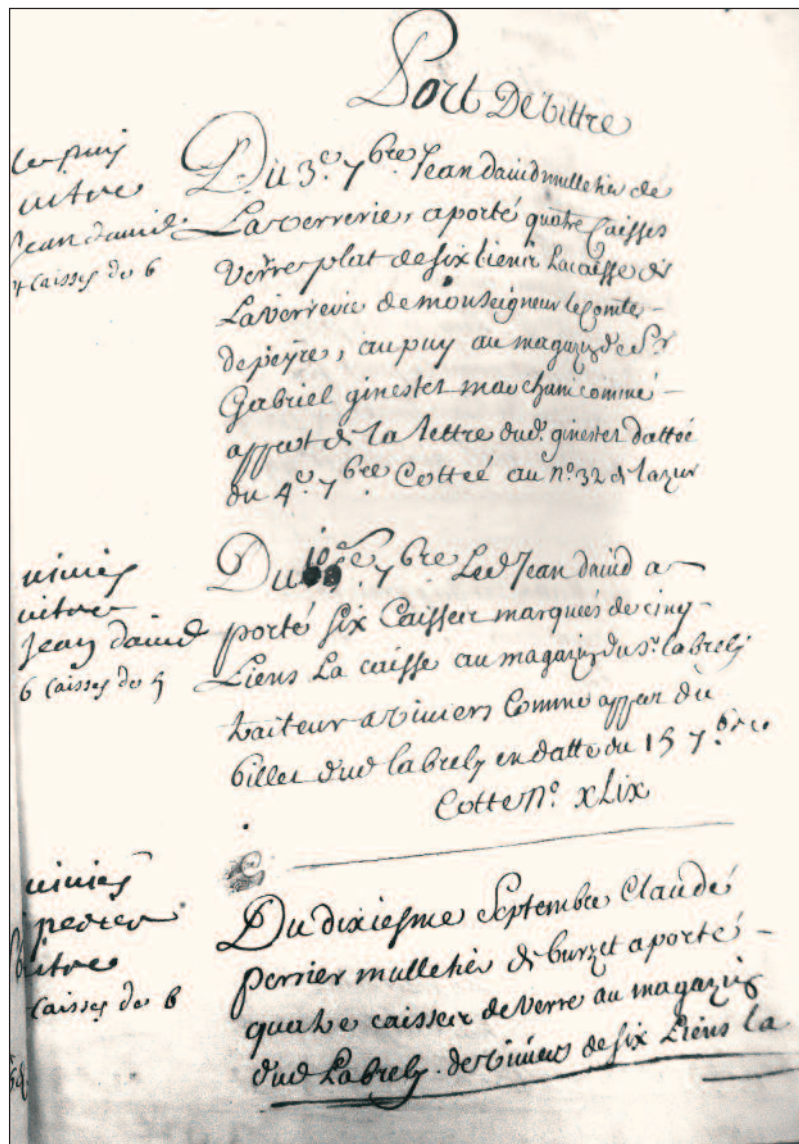 Port De vittre
le puy
vitre
Jean david
4 Caisses de 6
Du 3e. 7bre. Jean david mulletier de
La verrerie, a porté quatre Caisses
verre plat de six liens La caisse de
La verrerie de monseigneur le Comte
de peyre, au puy au magazin de Sr.
Gabriel ginestet marchant comme
appert de la lettre dud. ginestet dattée
du 4e. 7bre Cottée au no. 32 de
viviés
vitre
Jean david
6 Caisses de 5
Du 10e 7bre Led Jean david a
porté six Caisses marquées de cinq
Liens La caisse au magazin du Sr. labrely
traiteur a viviers Comme appert du
billet dud labrely en datte du 15 7bre
Cotte No. xLix
viviés
perier
vitre
Caisses de 6
Du dixiesme Septembre Claude
perrier mulletier de burzet a porté
quatre caisses de verre au magazin
dud Labrely. de viviers de six Liens la